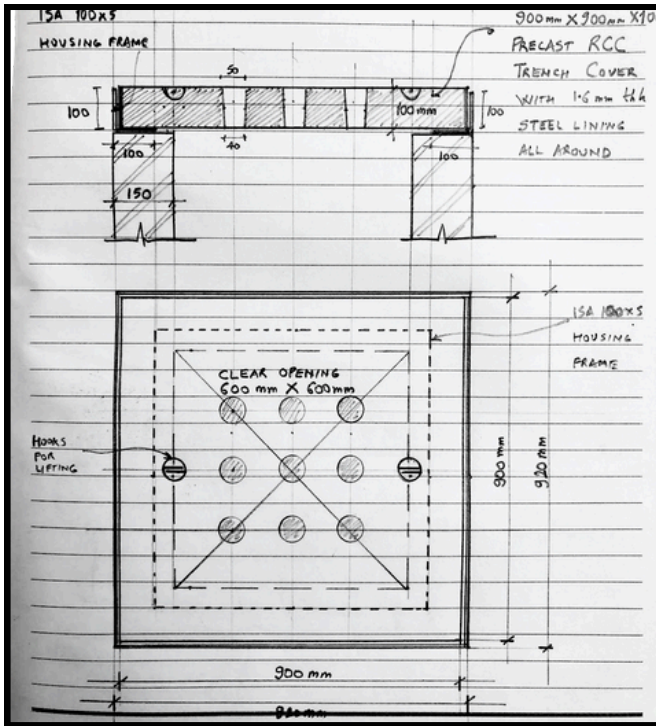 ISA 100x5
HOUSING FRAME
900mm X 900mm X10
PRECAST RCC
TRENCH COVER
WITH 1.6 mm thk
STEEL LINING
ALL AROUND
50
100
100mm
100
40
100
100
150
ISA 100x5
HOUSING
FRAME
CLEAR OPENING
600 mm X 600mm
HOOKS
FOR
LIFTING
900 mm
920 mm
900 mm
920 mm